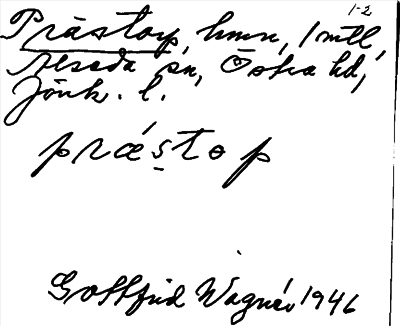 1-2
Prästtorp, hmn, 1 mtl,
Ressda sn, Östra hd,
Jönk. l.
prǽstop
Gottfrid Wagnér 1946